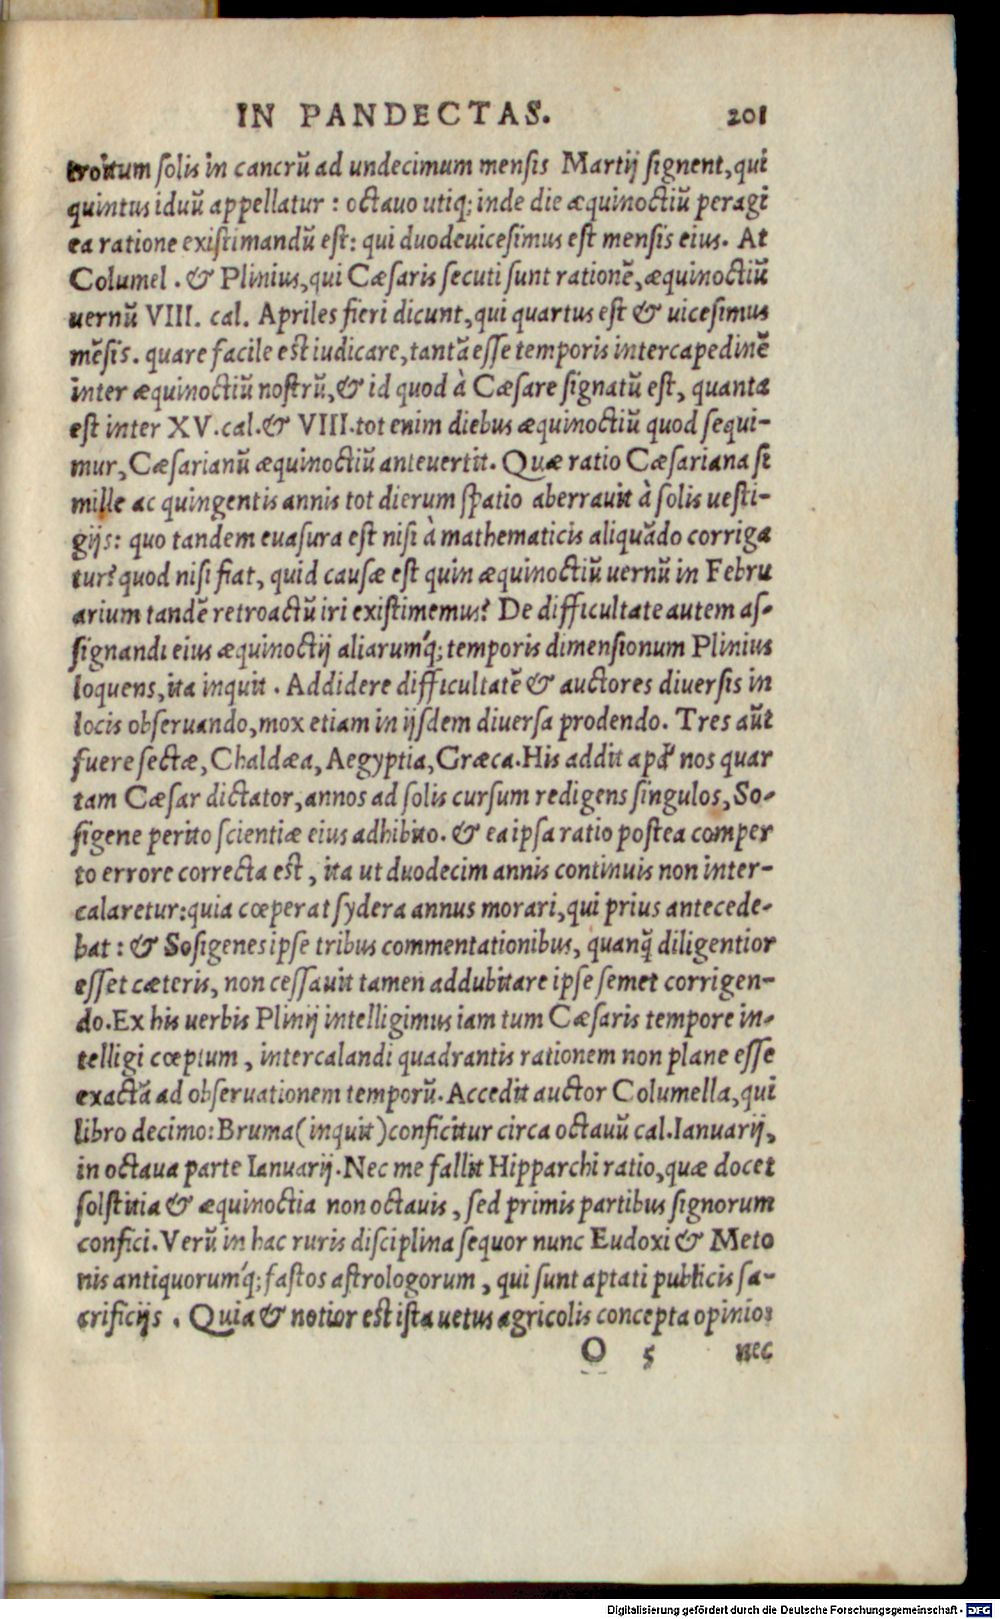 IN PANDECTAS. 201
troitum solis in cancrũ ad undecimum mensis Martij signent, qui
quintus iduũ appellatur : octauo utiq; inde die æquinoctiũ peragi
ea ratione existimandũ est: qui duodeuicesimus est mensis eius. At
Columel . & Plinius, qui Cæsaris secuti sunt rationẽ, æquinoctiũ
uernũ VIII. cal. Apriles fieri dicunt, qui quartus est & uicesimus
mẽsis. quare facile est iudicare, tantã esse temporis intercapedinẽ
inter æquinoctiũ nostrũ, & id quod à Cæsare signatũ est, quanta
est inter XV. cal. & VIII. tot enim diebus æquinoctiũ quod sequi-
mur, Cæsarianũ æquinoctiũ anteuertit. Quæ ratio Cæsariana si
mille ac quingentis annis tot dierum spatio aberrauit à solis uesti-
gijs: quo tandem euasura est nisi à mathematicis aliquãdo corriga
tur? quod nisi fiat, quid causæ est quin æquinoctiũ uernũ in Febru
arium tandẽ retroactũ iri existimemus? De difficultate autem as-
signandi eius æquinoctij aliarumq́; temporis dimensionum Plinius
loquens, ita inquit . Addidere difficultatẽ & auctores diuersis in
locis obseruando, mox etiam in ijsdem diuersa prodendo. Tres aũt
fuere sectæ, Chaldæa, Aegyptia, Græca. His addit apđ nos quar
tam Cæsar dictator, annos ad solis cursum redigens singulos, So-
sigene perito scientiæ eius adhibito. & ea ipsa ratio postea comper
to errore correcta est, ita ut duodecim annis continuis non inter-
calaretur: quia cœperat sydera annus morari, qui prius antecede-
bat : & Sosigenes ipse tribus commentationibus, quanq̃ diligentior
esset cæteris, non cessauit tamen addubitare ipse semet corrigen-
do. Ex his uerbis Plinij intelligimus iam tum Cæsaris tempore in-
telligi cœptum, intercalandi quadrantis rationem non plane esse
exactã ad obseruationem temporũ. Accedit auctor Columella, qui
libro decimo: Bruma (inquit) conficitur circa octauũ cal. Ianuarij,
in octaua parte Ianuarij. Nec me fallit Hipparchi ratio, quæ docet
solstitia & æquinoctia non octauis, sed primis partibus signorum
confici. Verũ in hac ruris disciplina sequor nunc Eudoxi & Meto
nis antiquorumq́; fastos astrologorum, qui sunt aptati publicis sa-
crificijs . Quia & notior est ista uetus agricolis concepta opinio:
O 5 nec
Digitalisierung gefördert durch die Deutsche Forschungsgemeinschaft - DFG